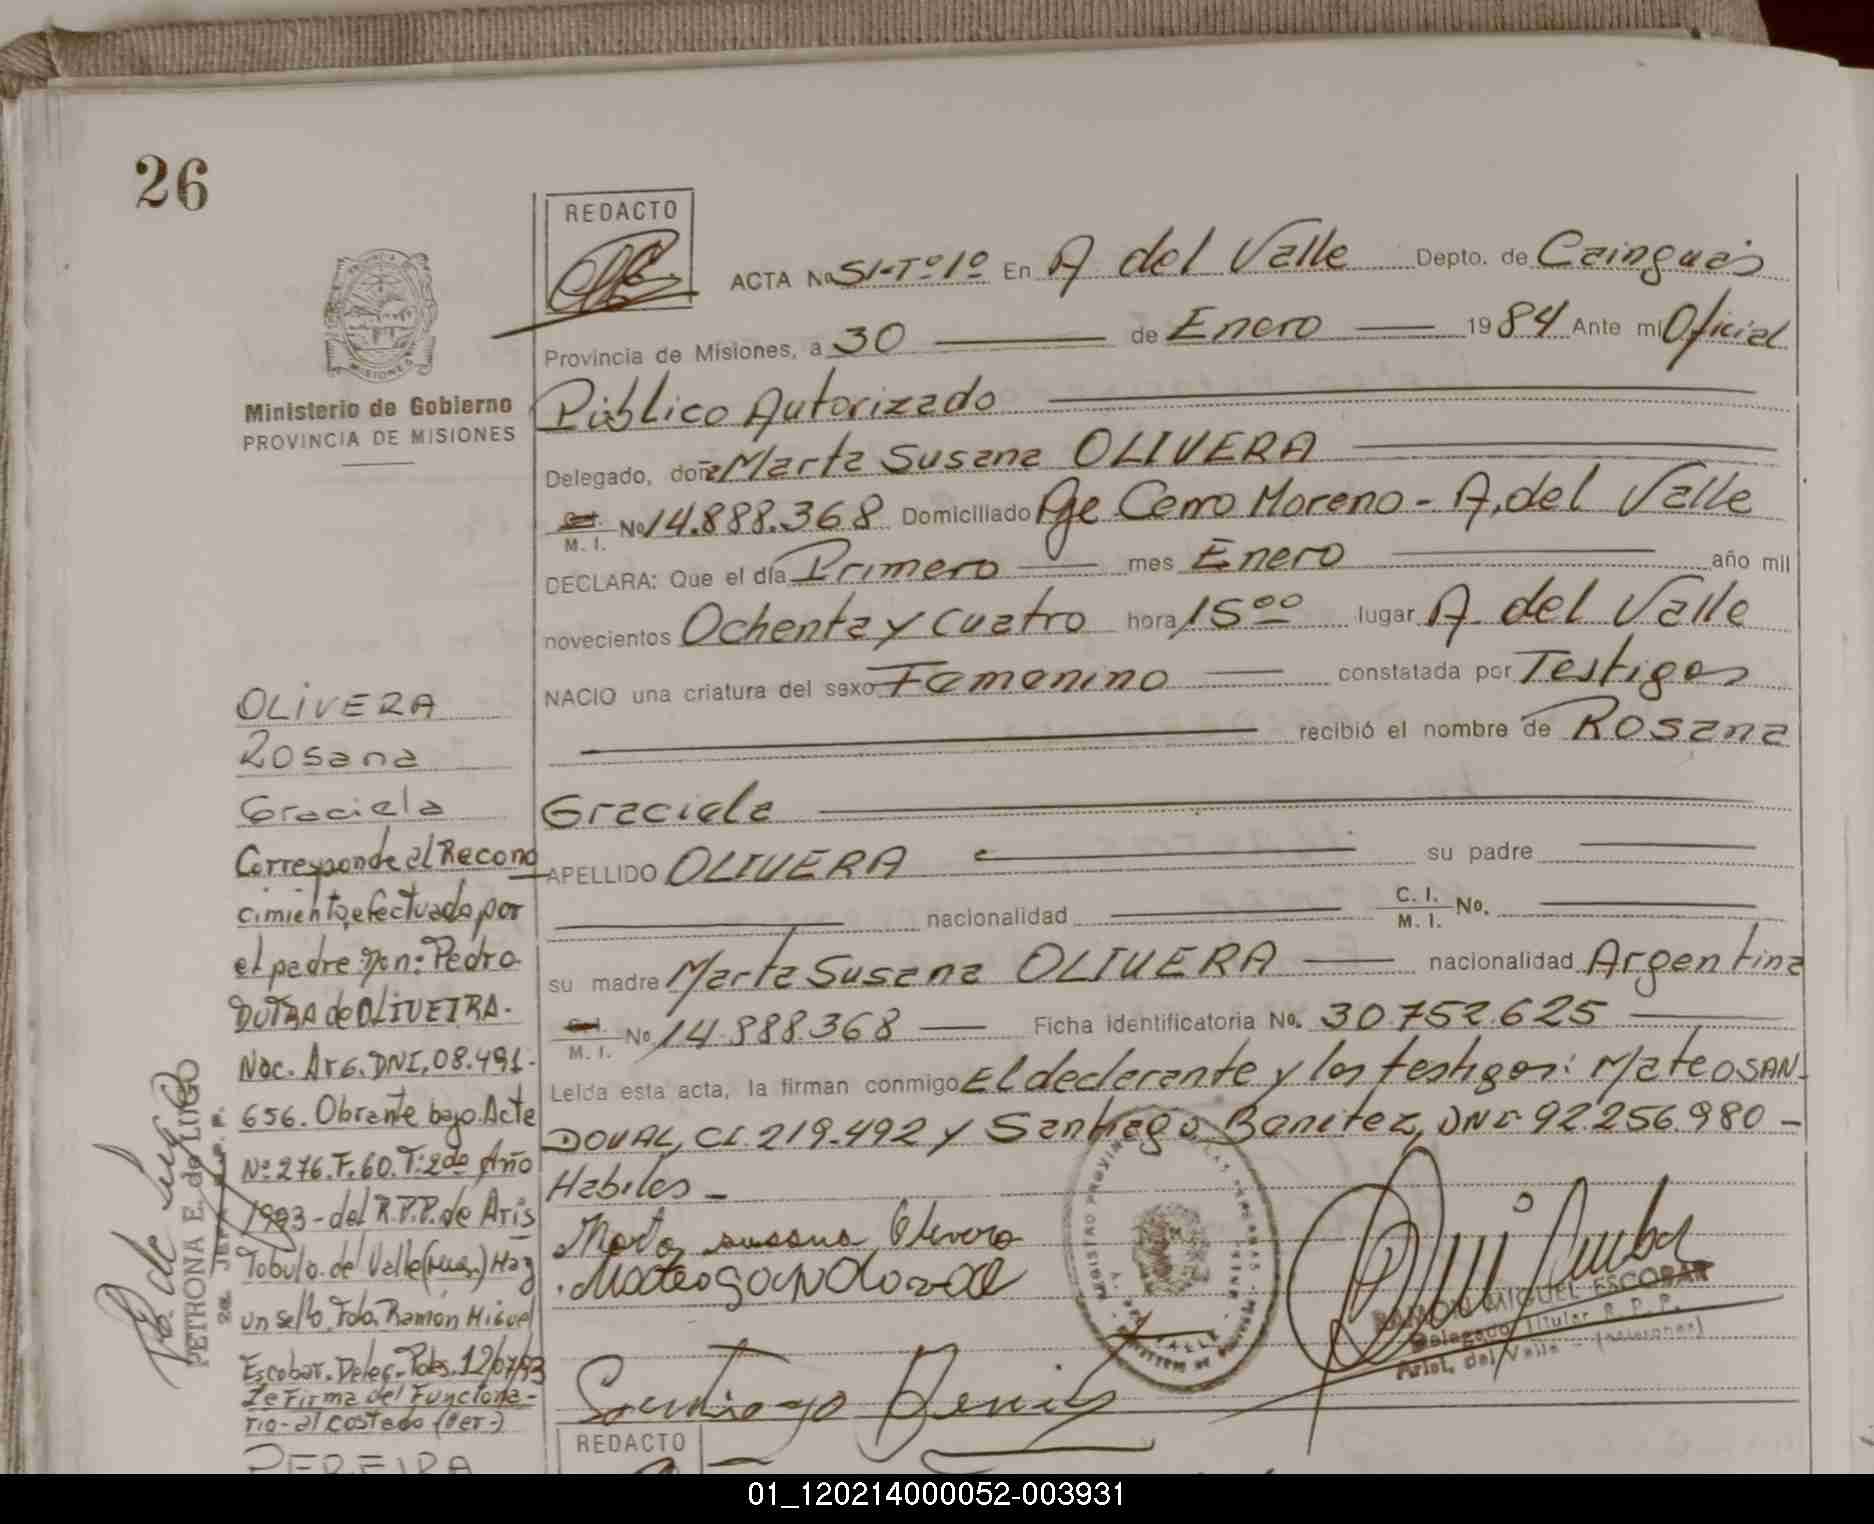 26
REDACTO
ACTA No 51-Tº1º En A. del Valle Depto. de Cainguás
Provincia de Misiones, a 30 de Enero 1984 Ante mi Oficial
Público Autorizado
Delegado, doña Marta Susana OLIVERA
M. I. No 14.888.368 Domiciliado Pje Cerro Moreno - A. del Valle
DECLARA: Que el día Primero mes Enero año mil
novecientos Ochenta y cuatro hora 15⁰⁰ lugar A. del Valle
NACIO una criatura del sexo Femenino constatada por Testigos
recibió el nombre de Rosana
Graciela
APELLIDO OLIVERA su padre
nacionalidad C. I. M. I. No.
su madre Marta Susana OLIVERA nacionalidad Argentina
C. I. M. I. No 14.888.368 Ficha identificatoria No. 30.752.625
Leída esta acta, la firman conmigo El declarante y los testigos: Mateo SAN-
DOVAL, CI. 219.492 y Santiago Benitez, DNI. 92.256.980 -
Habiles -
Marta susana Olivera
Mateo Sandoval
Santiago Benitez
RAMON MIGUEL ESCOBAR
Delegado Titular R. P. P.
Arist. del Valle - (Misiones)
MISIONES
Ministerio de Gobierno
PROVINCIA DE MISIONES
OLIVERA
Rosana
Graciela
Corresponde al Recono
cimiento efectuado por
el padre Don: Pedro
DUTRA de OLIVEIRA.
Nac. Arg. DNI. 08.491.
656. Obrante bajo Acta
Nº 276. F. 60. T: 2do Año
1993 - del R.P.P. de Aris
tobulo del Valle (Mnes.) Hay
un sello. Fdo. Ramon Miguel
Escobar. Deleg. Pdas. 12/07/93
La Firma del Funciona-
rio - al costado
PETRONA E. de LUGO
REDACTO
PEREIRA
01_120214000052-003931